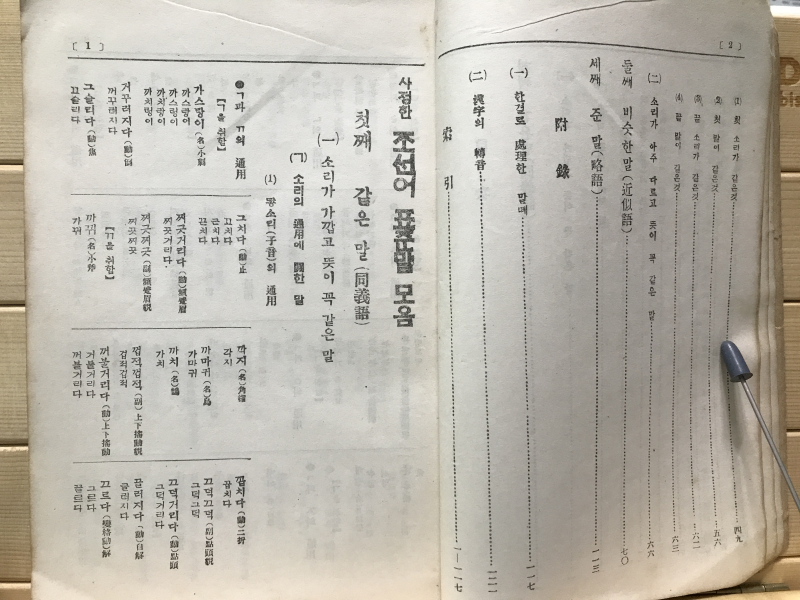 [2]
(1) 첫 소리가 같은것 四九
(2) 첫 말이 같은것 五六
(3) 끝 소리가 같은것 六一
(4) 끝 말이 같은것 六三
(二) 소리가 아주 다르고 뜻이 꼭 같은 말 六六
둘째 비슷한말(近似語) 七〇
세째 준 말(略語) 一一三
附錄
(一) 한결로 處理한 말떼 一一七
(二) 漢字의 轉音 一二二
索引 一-一一七
[1]
사정한 조선어 표준말 모음
첫째 같은 말(同義語)
(一) 소리가 가깝고 뜻이 꼭 같은 말
(ㄱ) 소리의 通用에 關한 말
(1) 닿소리(子音)의 通用
●ㄱ과 ㄲ의 通用
【ㄱ을 취함】
가스랑이(名)小刺
까스랑이
까치랑이
거꾸러지다(動)倒
꺼꾸러지다
그슬리다(動)焦
끄슬리다
그치다(動)止
끄치다
끈치다
찌긋거리다
찌긋찌긋
찌끗찌끗
【ㄲ을 취함】
까뀌(名)小斧
가뀌
깍지(名)角
각지
까마귀(名)烏
가마귀
까치(名)鵲
가치
껍적껍적(副)上下搖動貌
겁적겁적
꺼불거리다(動)上下搖動
거불거리다
꺼불거리다
깝치다(動)二折
끄덕끄덕(副)點頭貌
그덕그덕
끄덕거리다(動)點頭
그덕거리다
끌러지다(動)自解
글러지다
끄르다(變格動)解
그르다
끌르다